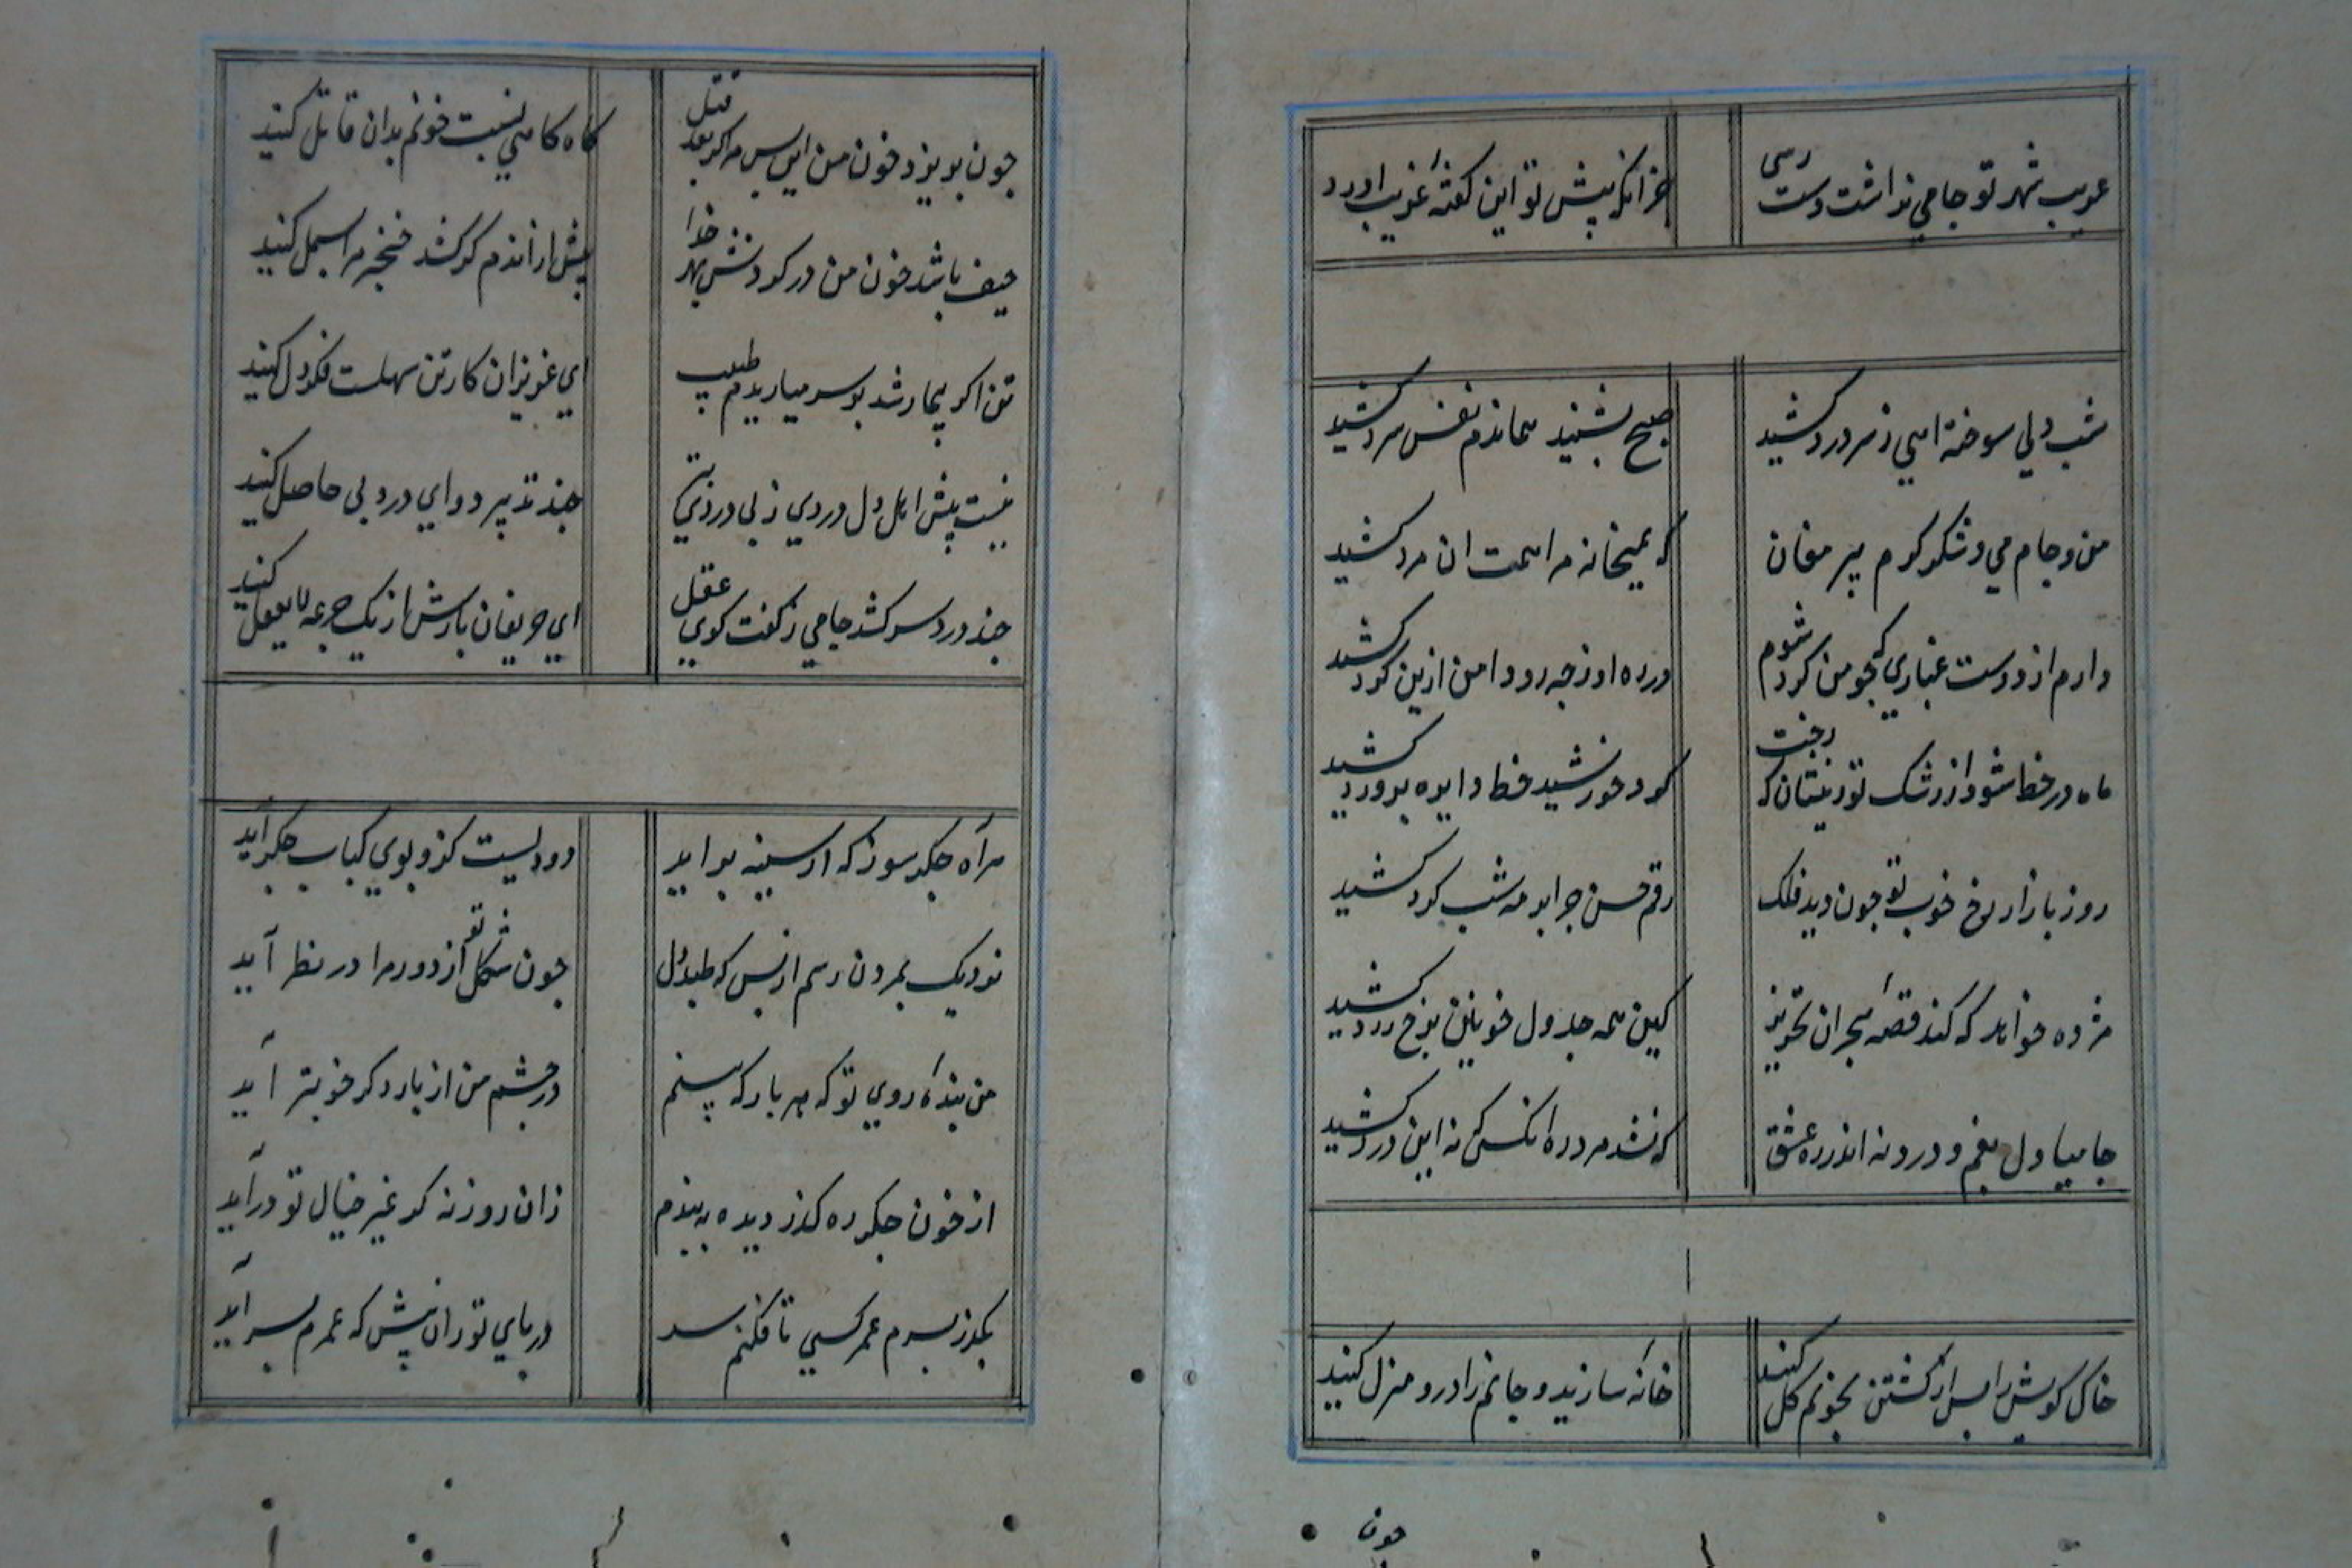 غریب شهر تو جامی نداشت دست رسی
جز انکه پیش تو این کفتهٔ غریب اورد
شب دلی سوخته اهی ز سر درد کشید
صبح بشنید هماندم نفس سرد کشید
من و جام می و شکر کرم پیر مغان
که بمیخانه مرا همت ان مرد کشید
دارم از دوست غباری که جو من کرد شوم
در ره او ز جه رو دامن ازین کرد کشید
ماه در خط شود از رشک تو زینسان که رخت
کرد خورشید خط دایره برورد کشید
روز بازار رخ خوب تو جون دید فلک
رقم حسن جرا بر مه شب کرد کشید
مژده خواهد که کند قصهٔ هجران تحریر
کین همه جدول خونین برخ زرد کشید
جامیا دل بغم و درد نه اندر ره عشق
که نشد مرد ره انکس که نه این درد کشید
خاک کویش را بس از کشتن بخونم کل کنید
خانه سازید و جانم را درو منزل کنید
جون
جون بریزد خون من این بس مرا کز بعد قتل
کاه کاهی نسبت خونم بدان قاتل کنید
حیف باشد خون من در کردنش بهر خدا
پیش از اندم کو کشد خنجر مرا بسمل کنید
تن اکر بیمار شد بر سر میاریدم طبیب
ای عزیزان کار تن سهلست فکر دل کنید
نیست پیش اهل دل دردی ز بی دردی بتر
جند تدبیر دوای درد بی حاصل کنید
جند درد سر کشد جامی ز کفت کوی عقل
ای حریفان بارش از یک جرعه لا یعقل کنید
هر آه جکر سوز که از سینه بر اید
دودیست کزو بوی کباب جکر آید
نزدیک بمردن رسم از بس که طبد دل
جون شکل تو از دور مرا در نظر آید
من بندهٔ روی تو که هر بار که بینم
در جشم من از بار دکر خوبتر آید
از خون جکر ره کذر دیده به بندم
زان روزنه کر غیر خیال تو در آید
بکذر بسرم عمر کسی تا فکنم سر
در بای تو زان پیش که عمرم بسر آید